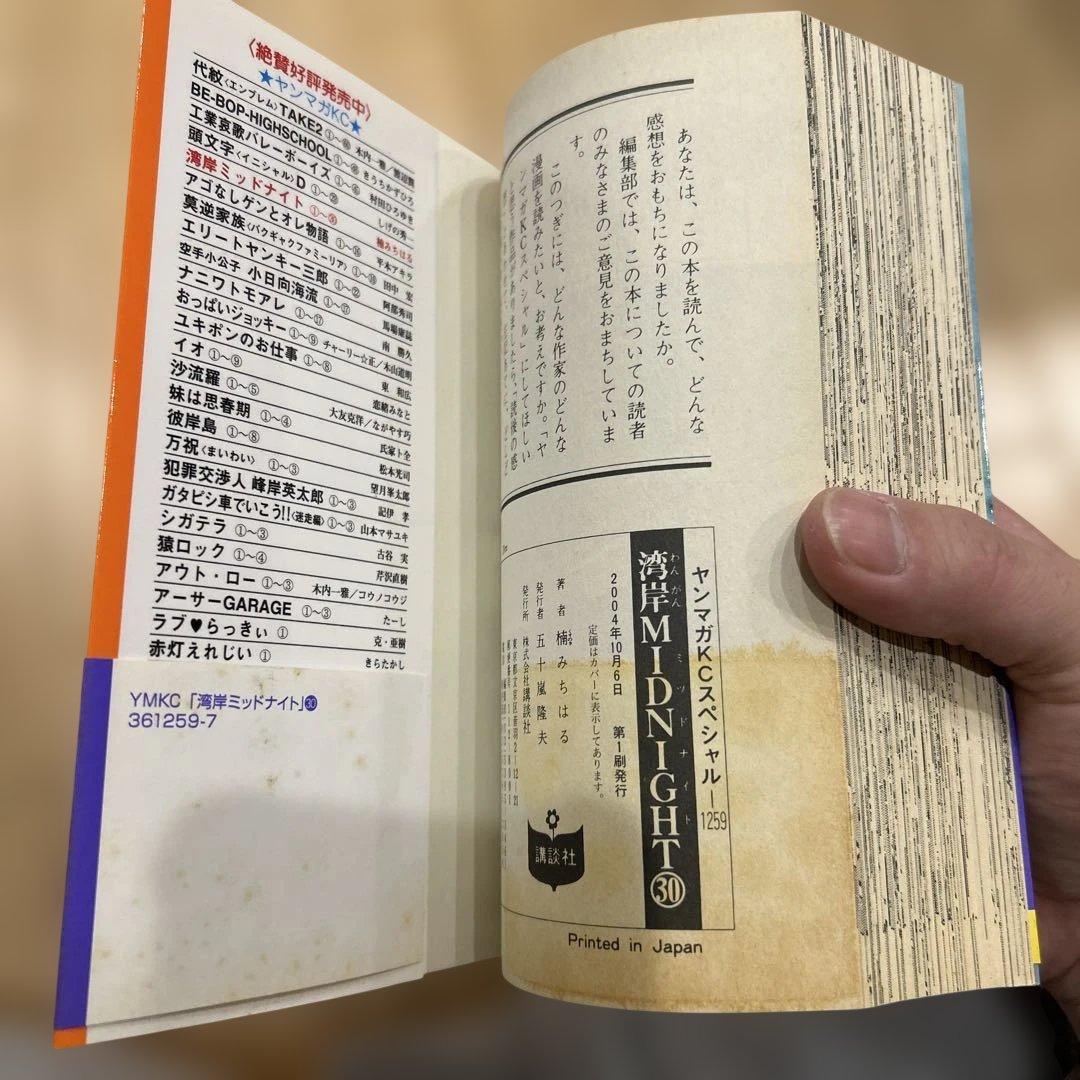 〈絶賛好評発売中〉
★ヤンマガKC★
代紋〈エンブレム〉TAKE2 木内一雅/渡辺潤
BE-BOP-HIGHSCHOOL きうちかずひろ
工業哀歌バレーボーイズ 村田ひろゆき
頭文字〈イニシャル〉D しげの秀一
湾岸ミッドナイト ①〜㉚ 楠みちはる
アゴなしゲンとオレ物語 ①〜⑯ 平本アキラ
莫逆家族〈バクギャクファミーリア〉 田中 宏
エリートヤンキー三郎 ①〜㉒ 阿部秀司
空手小公子 小日向海流 ①〜⑰ 馬場康誌
ナニワトモアレ ①〜⑰ 南 勝久
おっぱいジョッキー ①〜⑨ チャーリー☆正/木山道明
ユキポンのお仕事 ①〜⑧ 東 和広
イオ ①〜⑨ 恋緒みなと
沙流羅 ①〜⑤ 大友克洋/ながやす巧
妹は思春期 ①〜④ 氏家ト全
彼岸島 ①〜⑧ 松本光司
万祝〈まいわい〉 ①〜③ 望月峯太郎
犯罪交渉人 峰岸英太郎 ①〜③ 記伊 孝
ガタピシ車でいこう!!〈迷走編〉 ①〜③ 山本マサユキ
シガテラ ①〜③ 古谷 実
猿ロック ①〜④ 芹沢直樹
アウト・ロー ①〜③ 木内一雅/コウノコウジ
アーサーGARAGE ①〜③ たーし
ラブ♥らっきぃ ① 克・亜樹
赤灯えれじい ① きらたかし
YMKC「湾岸ミッドナイト」㉚
361259-7
あなたは、この本を読んで、どんな
感想をおもちになりましたか。
編集部では、この本についての読者
のみなさまのご意見をおまちしていま
す。
このつぎには、どんな作家のどんな
漫画を読みたいと、お考えですか。「ヤ
ンマガKCスペシャル」にしてほしい
ヤンマガKCスペシャル―1259
湾岸MIDNIGHT㉚
わんがん ミッドナイト
2004年10月6日 第1刷発行
定価はカバーに表示してあります。
著者 楠みちはる
発行者 五十嵐隆夫
発行所 株式会社講談社
東京都文京区音羽2-12-21
講談社
Printed in Japan